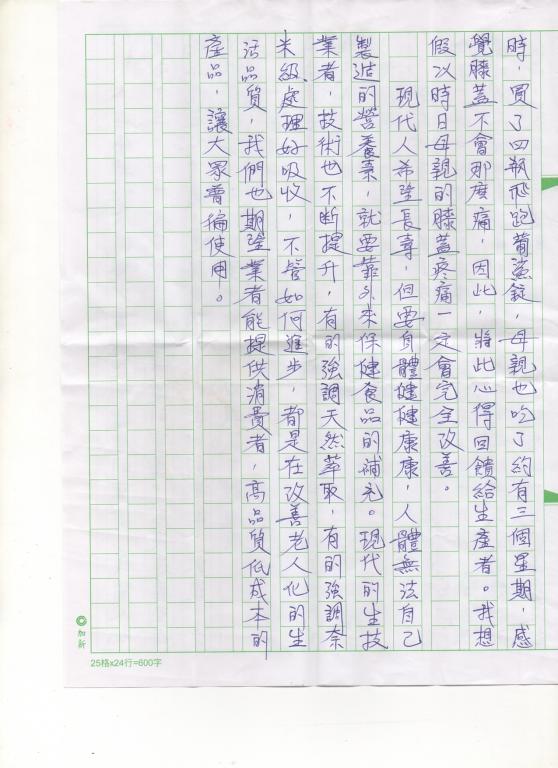 時，買了四瓶飛跑葡鯊錠，母親也吃了約有三個星期，感
覺膝蓋不會那麼痛，因此，將此心得回饋給生產者。我想
假以時日母親的膝蓋疼痛一定會完全改善。
現代人希望長壽，但要身體健健康康，人體無法自己
製造的營養素，就要靠外來保健食品的補充。現代的生技
業者，技術也不斷提升，有的強調天然萃取，有的強調奈
米級處理好吸收，不管如何進步，都是在改善老人化的生
活品質，我們也期望業者能提供消費者，高品質低成本的
產品，讓大眾普徧使用。
加新
25格x24行=600字